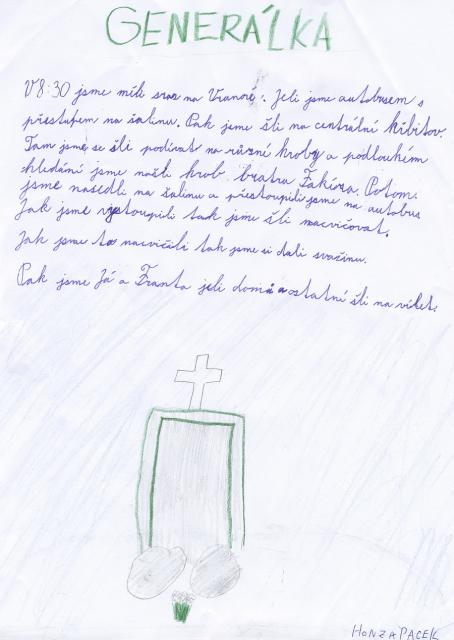 GENERÁLKA
V 8:30 jsme měli sraz na Vranově. Jeli jsme autobusem s
přestupem na šalinu. Pak jsme šli na centrální hřbitov.
Tam jsme se šli podívat na různé hroby a po dlouhém
hledání jsme našli hrob bratra Fakíra. Potom
jsme nasedli na šalinu a přestoupili jsme na autobus
Jak jsme vystoupili tak jsme šli nacvičovat.
Jak jsme to nacvičili tak jsme si dali svačinu.
Pak jsme Já a Franta jeli domů a ostatní šli na výlet.
HONZA PACEK